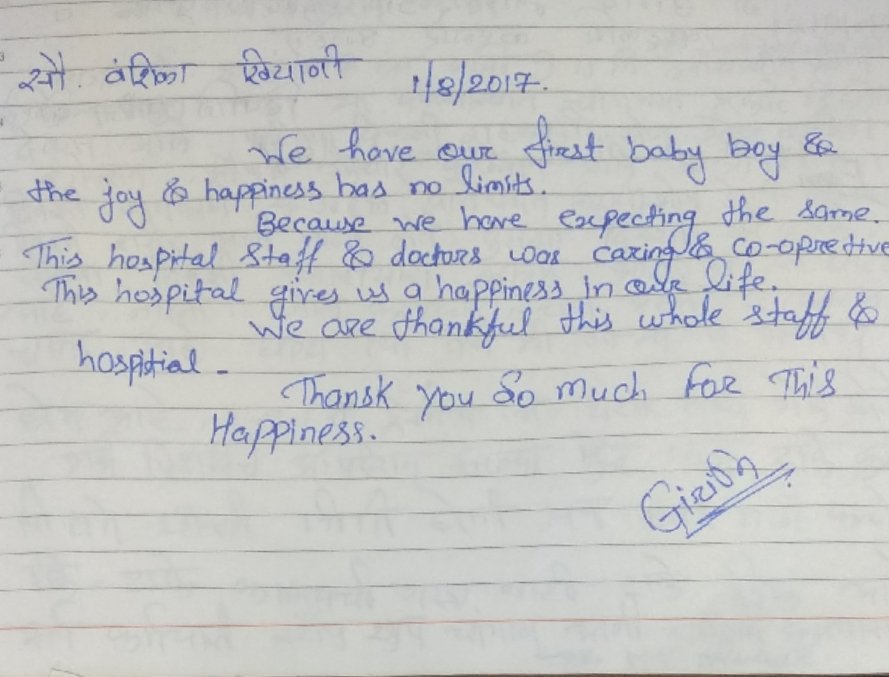 सौ. वंशिका खियाणी 1/8/2017.
We have our first baby boy &
the joy & happiness has no limits.
Because we have expecting the same.
This hospital staff & doctors was caring & co-opretive
This hospital gives us a happiness in our life.
We are thankful this whole staff &
hospitial -
Thansk you So much For This
Happiness.